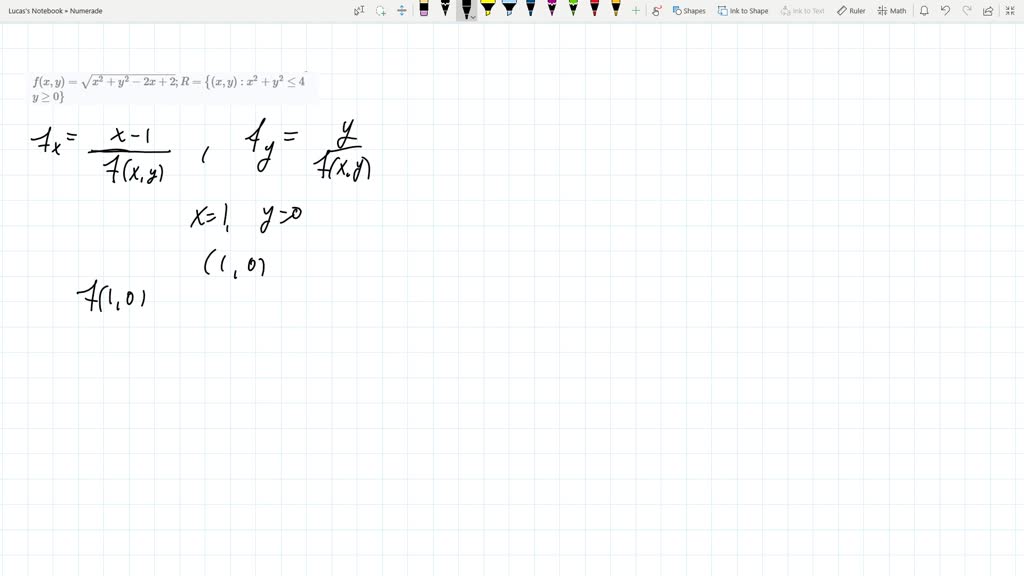 Lucas's Notebook » Numerade
Shapes Ink to Shape Ink to Text Ruler Math
f(x, y) = √(x² + y² − 2x + 2); R = {(x, y) : x² + y² ≤ 4
y ≥ 0}
fx = (x-1)/f(x,y) , fy = y/f(x,y)
x=1, y=0
(1, 0)
f(1, 0)